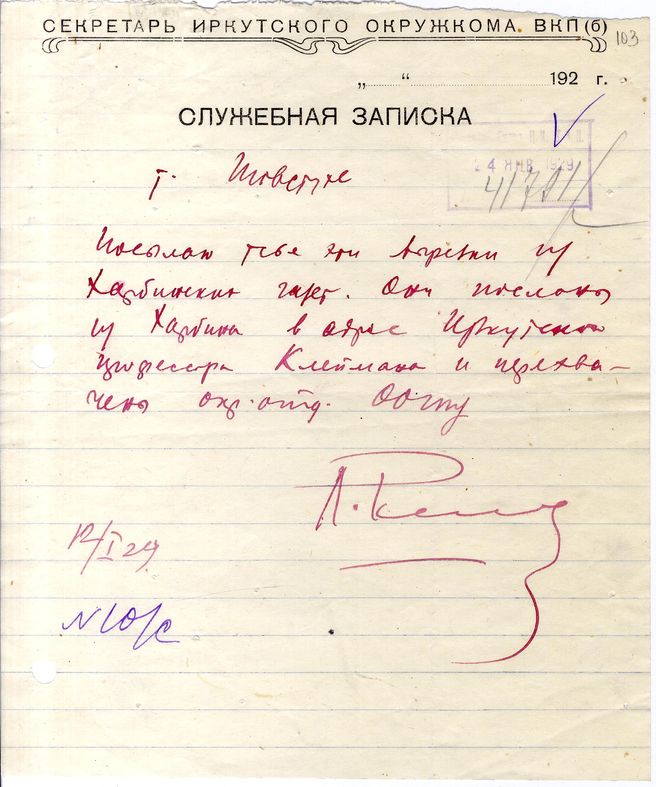 СЕКРЕТАРЬ ИРКУТСКОГО ОКРУЖКОМА ВКП(б)
103
„ “ 192 г.
СЛУЖЕБНАЯ ЗАПИСКА
24 ЯНВ 1929
т. Товстухе
Посылаю тебе эти вырезки из
Харбинских газет. Они посланы
из Харбина в адрес Иркутского
профессора Клеймана и перехва-
чены окр. отд. ОГПУ
12/I 29
N 10/с